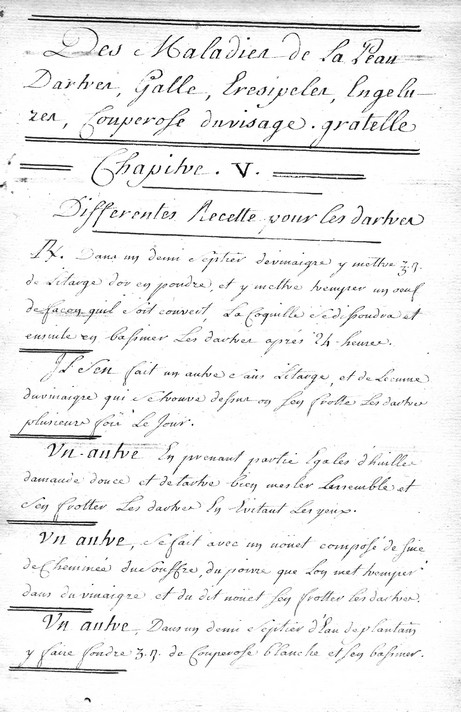 Des Maladies de La Peau
Dartres, Galle, Eresipeles, Engelu-
res, Couperose du visage. gratelle
Chapitre. V.
Differentes Recette pour les dartres
Rx. Dans un demi Septier de vinaigre y mettre 3.
de Litarge d'or en poudre, et y mettre tremper un oeuf
de facon quil soit couvert, La Coquille se dissoudra et
ensuite en bassiner Les dartres aprés 24 heures.
JL S'en fait un autre sans Litarge, et de Lecume
du vinaigre qui se trouve dessus on s'en frotte Les dartres
plusieurs fois Le Jour.
Un autre En prenant partie Egales d'huille
damande douce et de tartre bien mesler Lensemble et
s'en frotter Les dartres En Evitant Les yeux.
Un autre, se fait avec un noüet composé de suie
de Cheminée du souffre, du poivre que Lon met tremper
dans du vinaigre et du dit noüet s'en frotter les dartres.
Un autre, Dans un demi septier d'Eau de plantain
y faire fondre 3. de Couperose blanche et s'en bassiner.